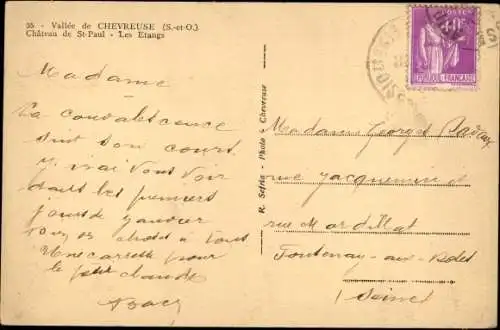 35. - Vallée de CHEVREUSE (S.-et-O.)
Château de St-Paul - Les Etangs
Madame
La convalescence
suit son cours
j'irai vous voir
dans les premiers
jours de janvier
à tous
Une caresse pour
le petit claude
R. Séfria - Photo à Chevreuse
POSTES
REPUBLIQUE FRANÇAISE
Madame Georges
rue Jacquemin
rue Mordillat
Fontenay-aux-Roses
(Seine)